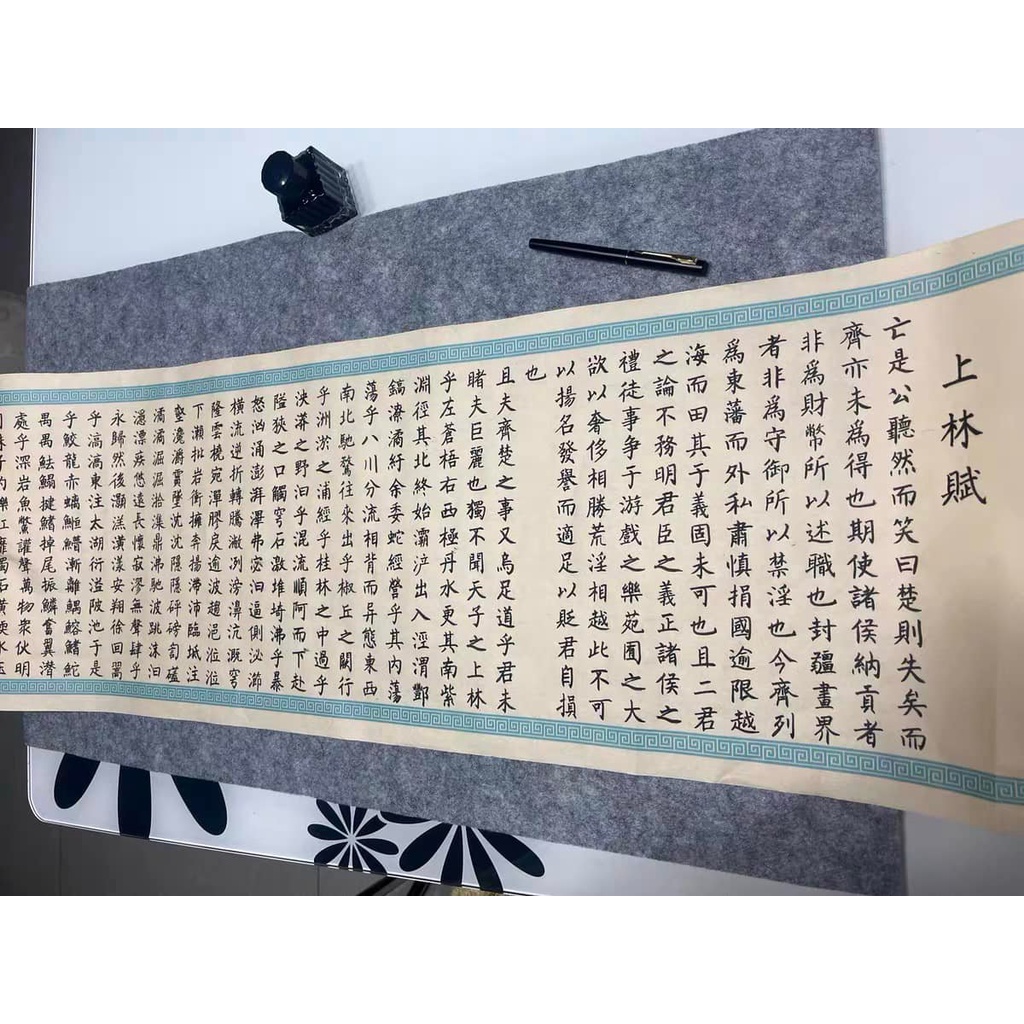 上林賦
亡是公聽然而笑曰楚則失矣而
齊亦未為得也期使諸侯納貢者
非爲財幣所以述職也封疆畫界
者非爲守御所以禁淫也今齊列
爲東藩而外私肅慎捐國逾限越
海而田其于義固未可也且二君
之論不務明君臣之義正諸侯之
禮徒事爭于游戲之樂苑囿之大
欲以奢侈相勝荒淫相越此不可
以揚名發譽而適足以貶君自損
也
且夫齊楚之事又烏足道乎君未
睹夫巨麗也獨不聞天子之上林
乎左蒼梧右西極丹水更其南紫
淵徑其北終始灞浐出入涇渭酆
鎬潦潏紆余委蛇經營乎其內蕩
蕩乎八川分流相背而异態東西
南北馳騖往來出乎椒丘之闕行
乎洲淤之浦經乎桂林之中過乎
泱漭之野汩乎混流順阿而下赴
隘狹之口觸穹石激堆埼沸乎暴
怒洶涌澎湃滭弗宓汩逼側泌瀄
橫流逆折轉騰潎冽滂濞沆溉穹
隆雲橈宛潬膠戾逾波趨浥涖涖
下瀨批岩衝擁奔揚滯沛臨坻注
壑瀺灂霣墜沈沈隱隱砰磅訇礚
潏潏淈淈湁潗鼎沸馳波跳沫汩
漂疾悠遠長懷寂漻無聲肆乎
永歸然後灝溔潢漾安翔徐回翯
乎滈滈東注太湖衍溢陂池于是
乎鮫龍赤螭漸離鰅鰫鰭鮀
禺禺魼鰨揵鰭掉尾振鱗奮翼潛
處乎深岩魚鱉讙聲萬物眾伙明